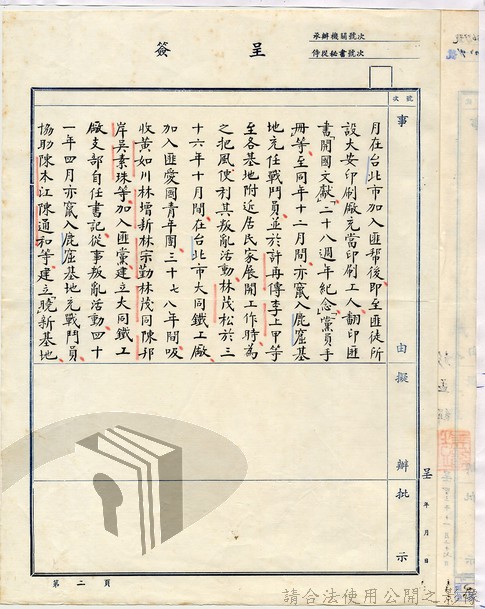 承辦機關號次
侍從秘書號次
簽呈
號次
事由
擬辦
批示
月在台北市加入匪幫後即至匪徒所
設大安印刷廠充當印刷工人翻印匪
書「開國文獻」「二十八週年紀念」「黨員手
冊」等至同年十二月間亦竄入鹿窟基
地充任戰鬥員並於許再傳李上甲等
至各基地附近居民家展開工作時為
之把風使利其叛亂活動林茂松於三
十六年十月間在台北市大同鐵工廠
加入匪愛國青年團三十七八年間吸
收黃如川林增新林宗勤林茂同陳邦
岸吳素珠等加入匪黨建立大同鐵工
廠支部自任書記從事叛亂活動四十
一年四月亦竄入鹿窟基地充戰鬥員
協助陳木江陳通和等建立曉新基地
呈
年
月
日
第二頁
請合法使用公開之影像